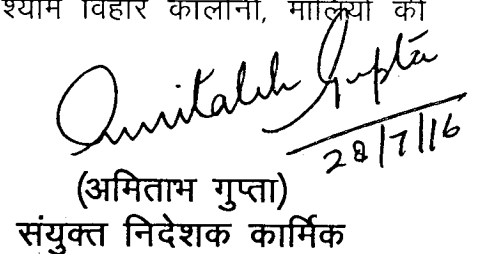 श्याम विहार कालोनी, मालियों की
Amitabh Gupta
28/7/16
(अमिताभ गुप्ता)
संयुक्त निदेशक कार्मिक